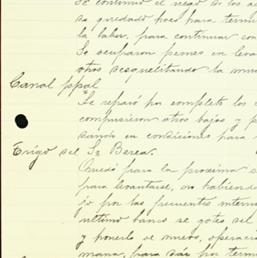 Se continuó el riego de los al
ha quedado poco para termin
la labor, para continuar con
Se ocuparon peones en leva
otros desquelitando la mem
Canal ppal
Se reparó por completo los
compusieron otros bajos y p
sando en condiciones para
Trigo del Sr Berea.
Quedó para la proxima s
para levantarse, no habiendo
jo por las frecuentes interru
último banco se gotes del
y ponerlo de nuevo, operació
mana, para dar por term